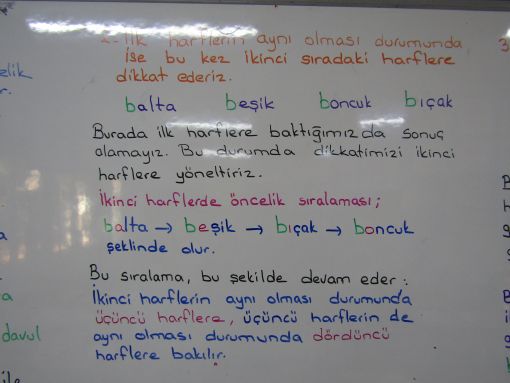 2- İlk harflerin aynı olması durumunda
ise bu kez ikinci sıradaki harflere
dikkat ederiz.
balta beşik boncuk bıçak
Burada ilk harflere baktığımızda sonuç
alamayız. Bu durumda dikkatimizi ikinci
harflere yöneltiriz.
İkinci harflerde öncelik sıralaması;
balta → beşik → bıçak → boncuk
şeklinde olur.
Bu sıralama, bu şekilde devam eder:
İkinci harflerin aynı olması durumunda
üçüncü harflere, üçüncü harflerin de
aynı olması durumunda dördüncü
harflere bakılır.
davul
3